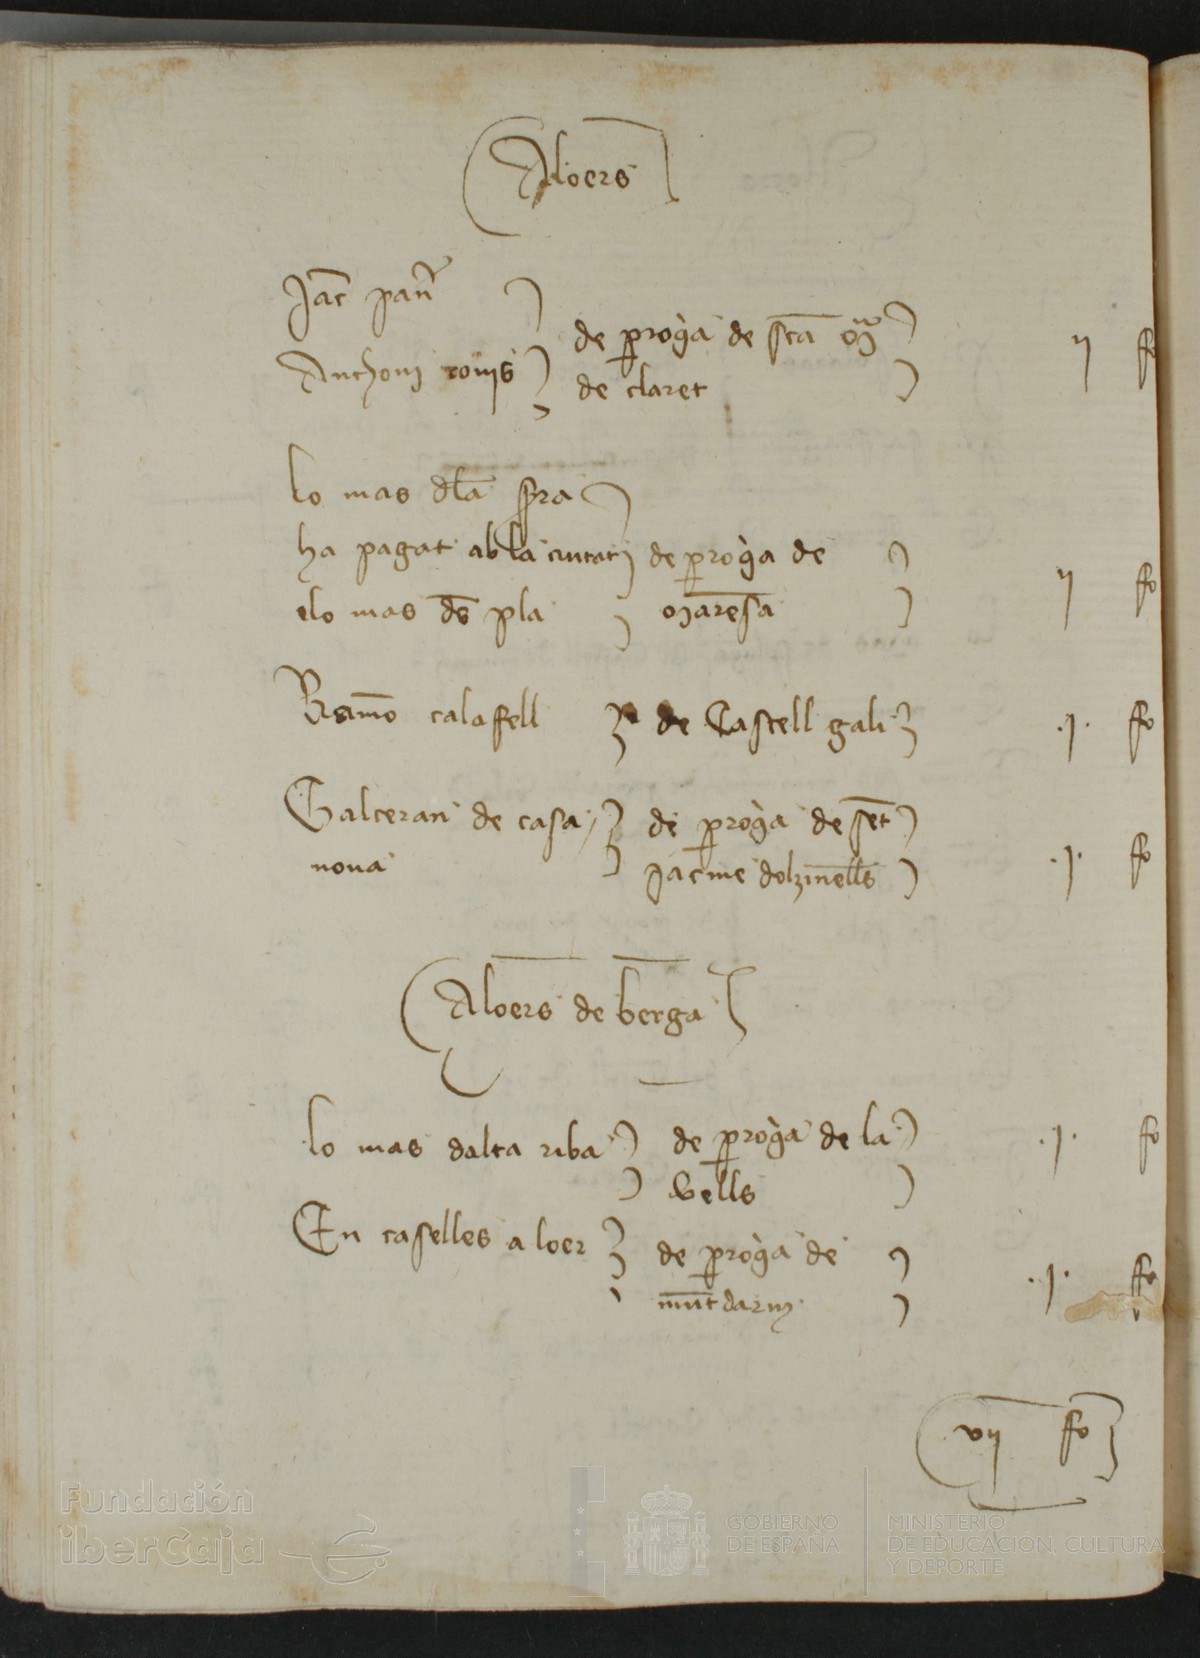 Aloers
Jac̅ pan̅
Anthoni rovis de p̱roq̇a de sc̅a ma de claret ij fo
lo mas dl̅a sra
ha pagat ab la ciutat de p̱roq̇a de
elo mas des pla manresa ij fo
Ramo̅ calafell de Castell gali .j. fo
Galceran de casa de p̱roq̇a de se̅t
nova Jacme dolzinells .j. fo
Aloers de berga
lo mas dalta riba de p̱roq̇a de la .j. fo
vells
En caselles aloer de p̱roq̇a de .j. fo
mu̅tdarn
vij fo
Fundación
iberCaja
GOBIERNO
DE ESPAÑA
MINISTERIO
DE EDUCACIÓN, CULTURA
Y DEPORTE